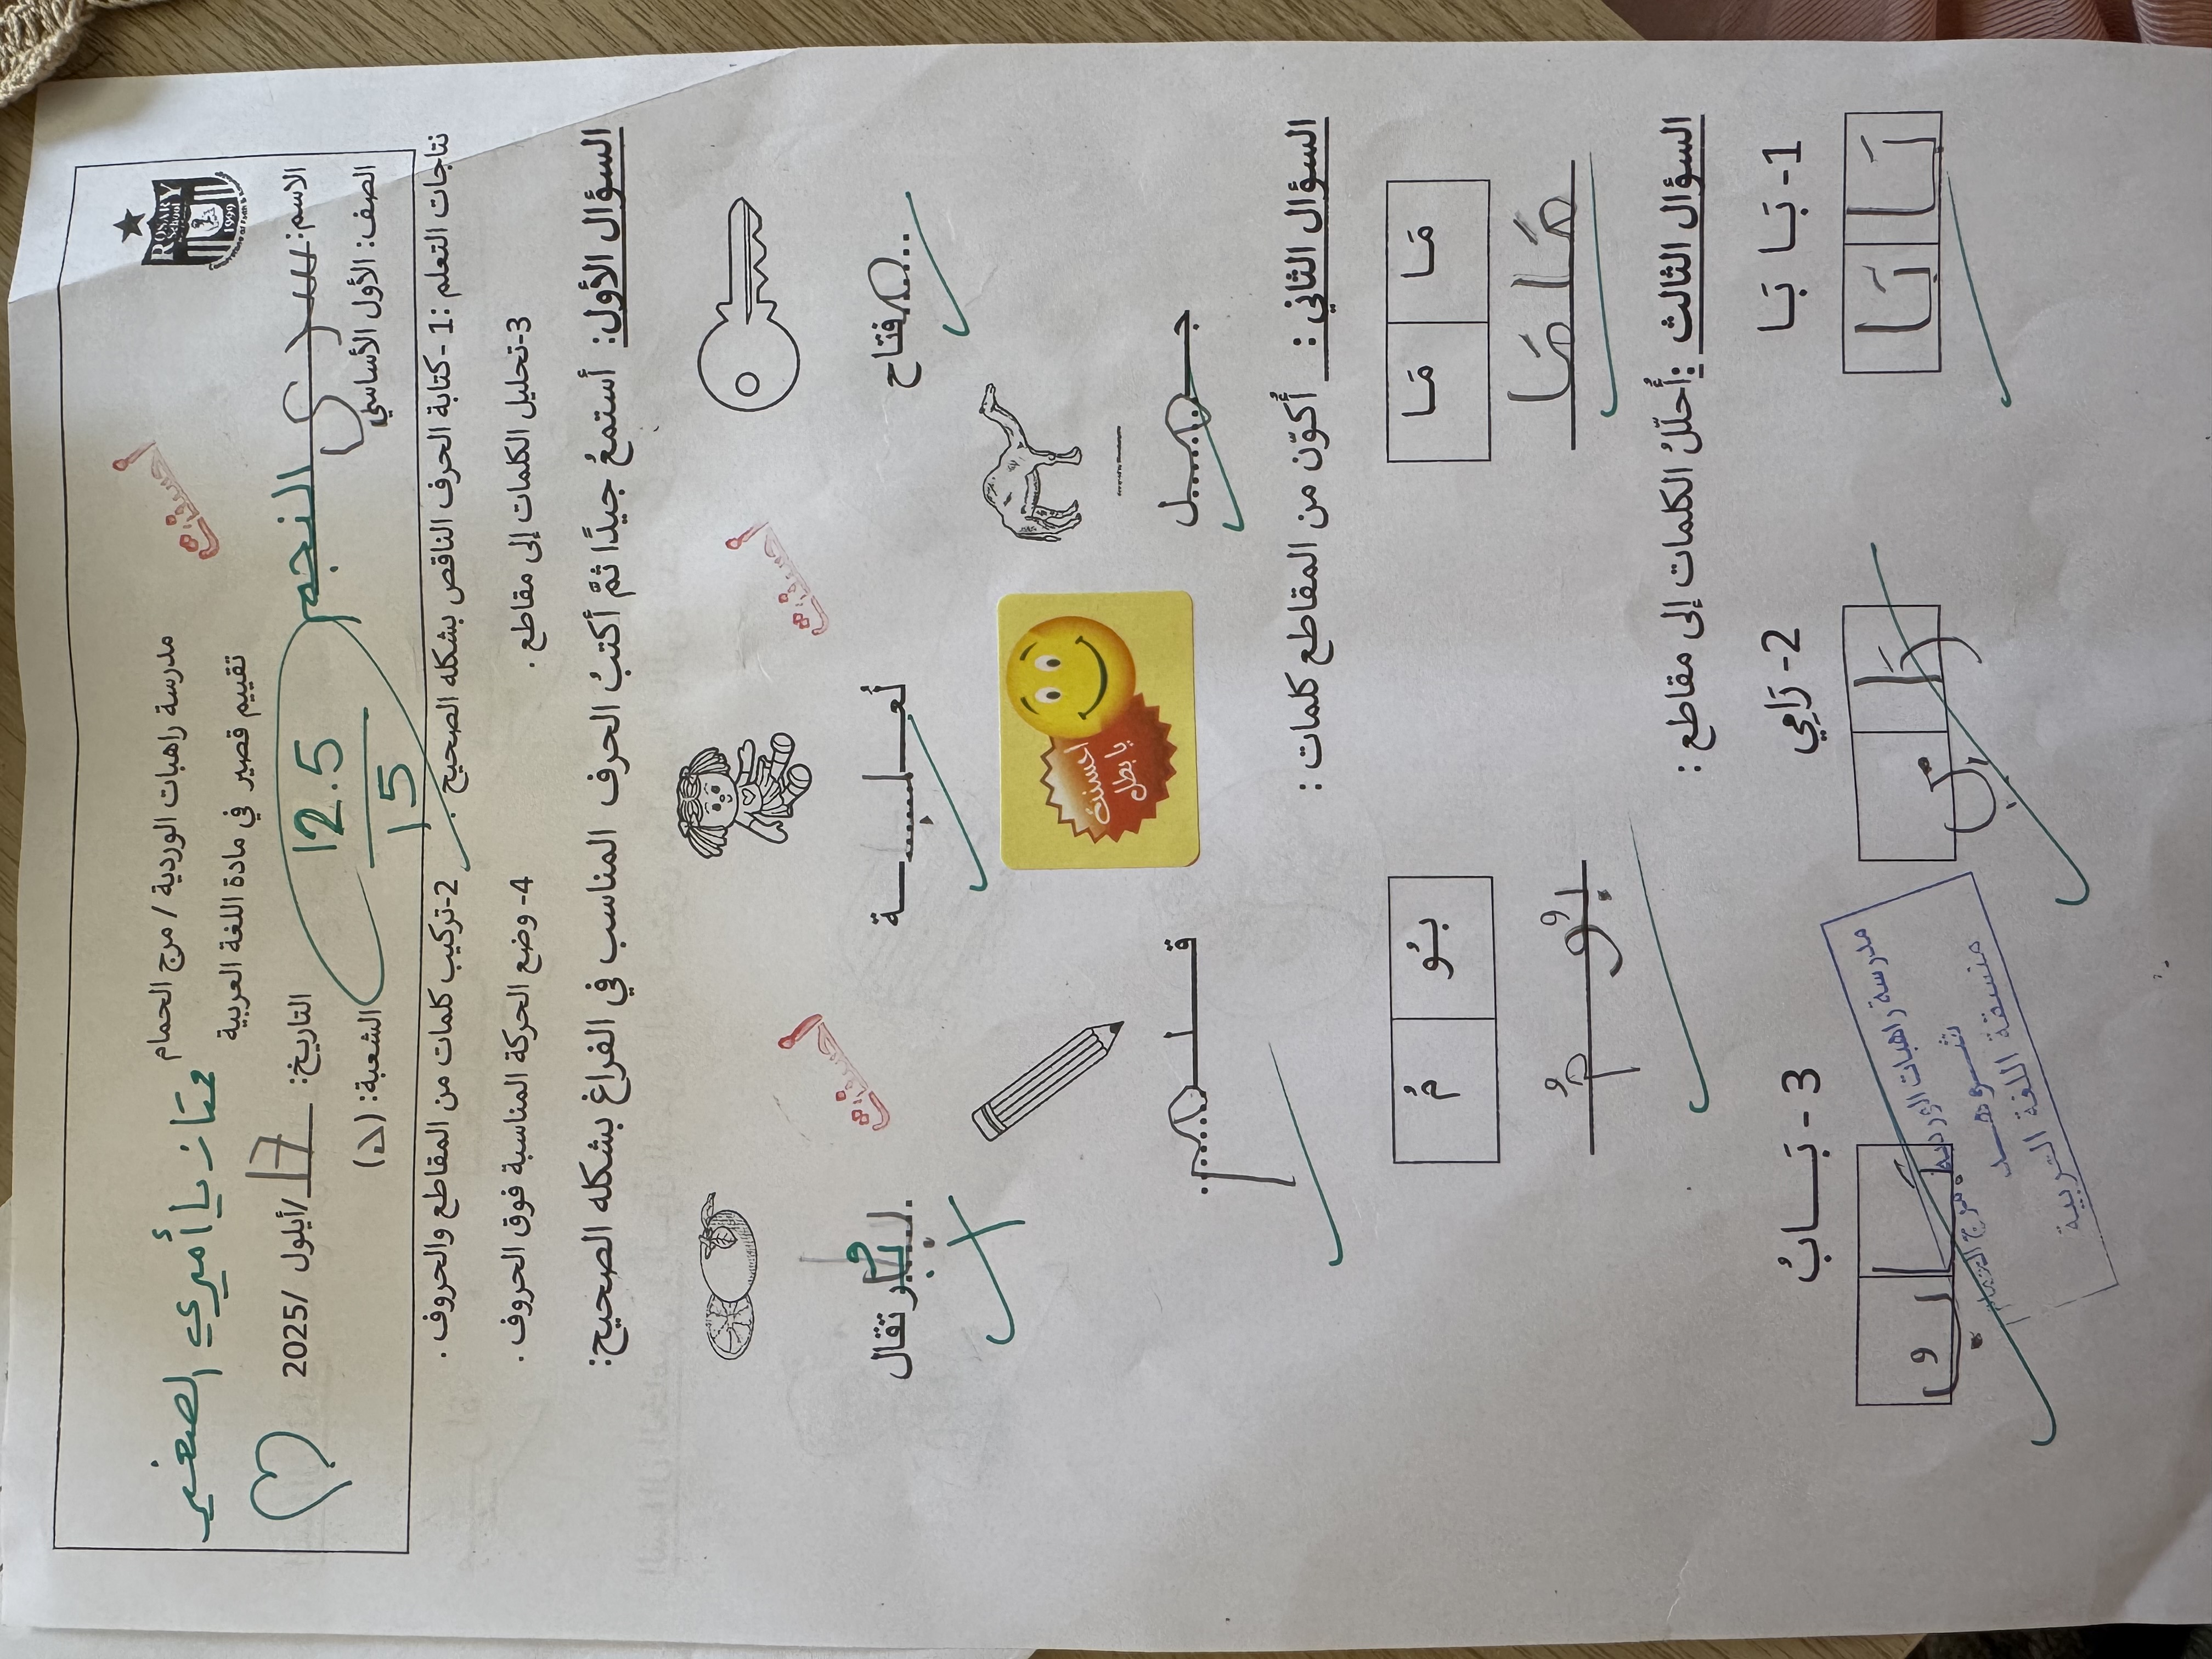 ROSARY
School
1999
مدرسة راهبات الوردية / مرج الحمام
ممتاز يا أميري الصغير
تقييم قصير في مادة اللغة العربية
الاسم: سري النجم
التاريخ: 17 /أيلول /2025
الصف: الأول الأساسي
12.5
15
الشعبة: (د)
نتاجات التعلم :1- كتابة الحرف الناقص بشكله الصحيح . 2-تركيب كلمات من المقاطع والحروف .
3-تحليل الكلمات إلى مقاطع . 4- وضع الحركة المناسبة فوق الحروف .
السؤال الأول: أستمعُ جيدًا ثمَّ أكتبُ الحرف المناسب في الفراغ بشكله الصحيح:
أحسنت
أحسنت
أحسنت
مفتاح
لُعـبـة
بُرتقال
جـمـل
قـلـم
أحسنت
يا بطل
السؤال الثاني : أكوّن من المقاطع كلمات :
مَـا مَـا
بـُو مُ
مَامَا
بُومُ
السؤال الثالث :أُحلّلُ الكلمات إلى مقاطع :
1- بَـا بَـا
2- رَامِي
3 - بَـــابُ
بَا بَا
رَا مِي
بَا بُ
مدرسة راهبات الوردية
مرج الحمام
منسقة اللغة العربية